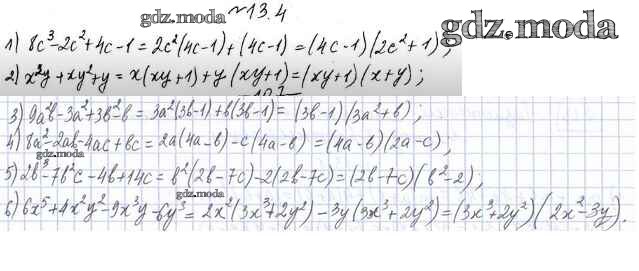 gdz.moda
№ 13.4
gdz.moda
1) 8c³-2c²+4c-1 = 2c²(4c-1)+(4c-1) = (4c-1)(2c²+1);
2) x²y+xy²+y = x(xy+1)+y(xy+1)=(xy+1)(x+y);
3) 9a²b-3a²+3b²-b = 3a²(3b-1)+b(3b-1)= (3b-1)(3a²+b);
4) 8a²-2ab-4ac+bc = 2a(4a-b)-c(4a-b) = (4a-b)(2a-c);
gdz.moda
5) 2b³-7b²c-4b+14c = b²(2b-7c)-2(2b-7c)=(2b-7c)(b²-2);
gdz.moda
6) 6x⁵+4x²y²-9x³y-6y³ = 2x²(3x³+2y²)-3y(3x³+2y²)=(3x³+2y²)(2x²-3y).